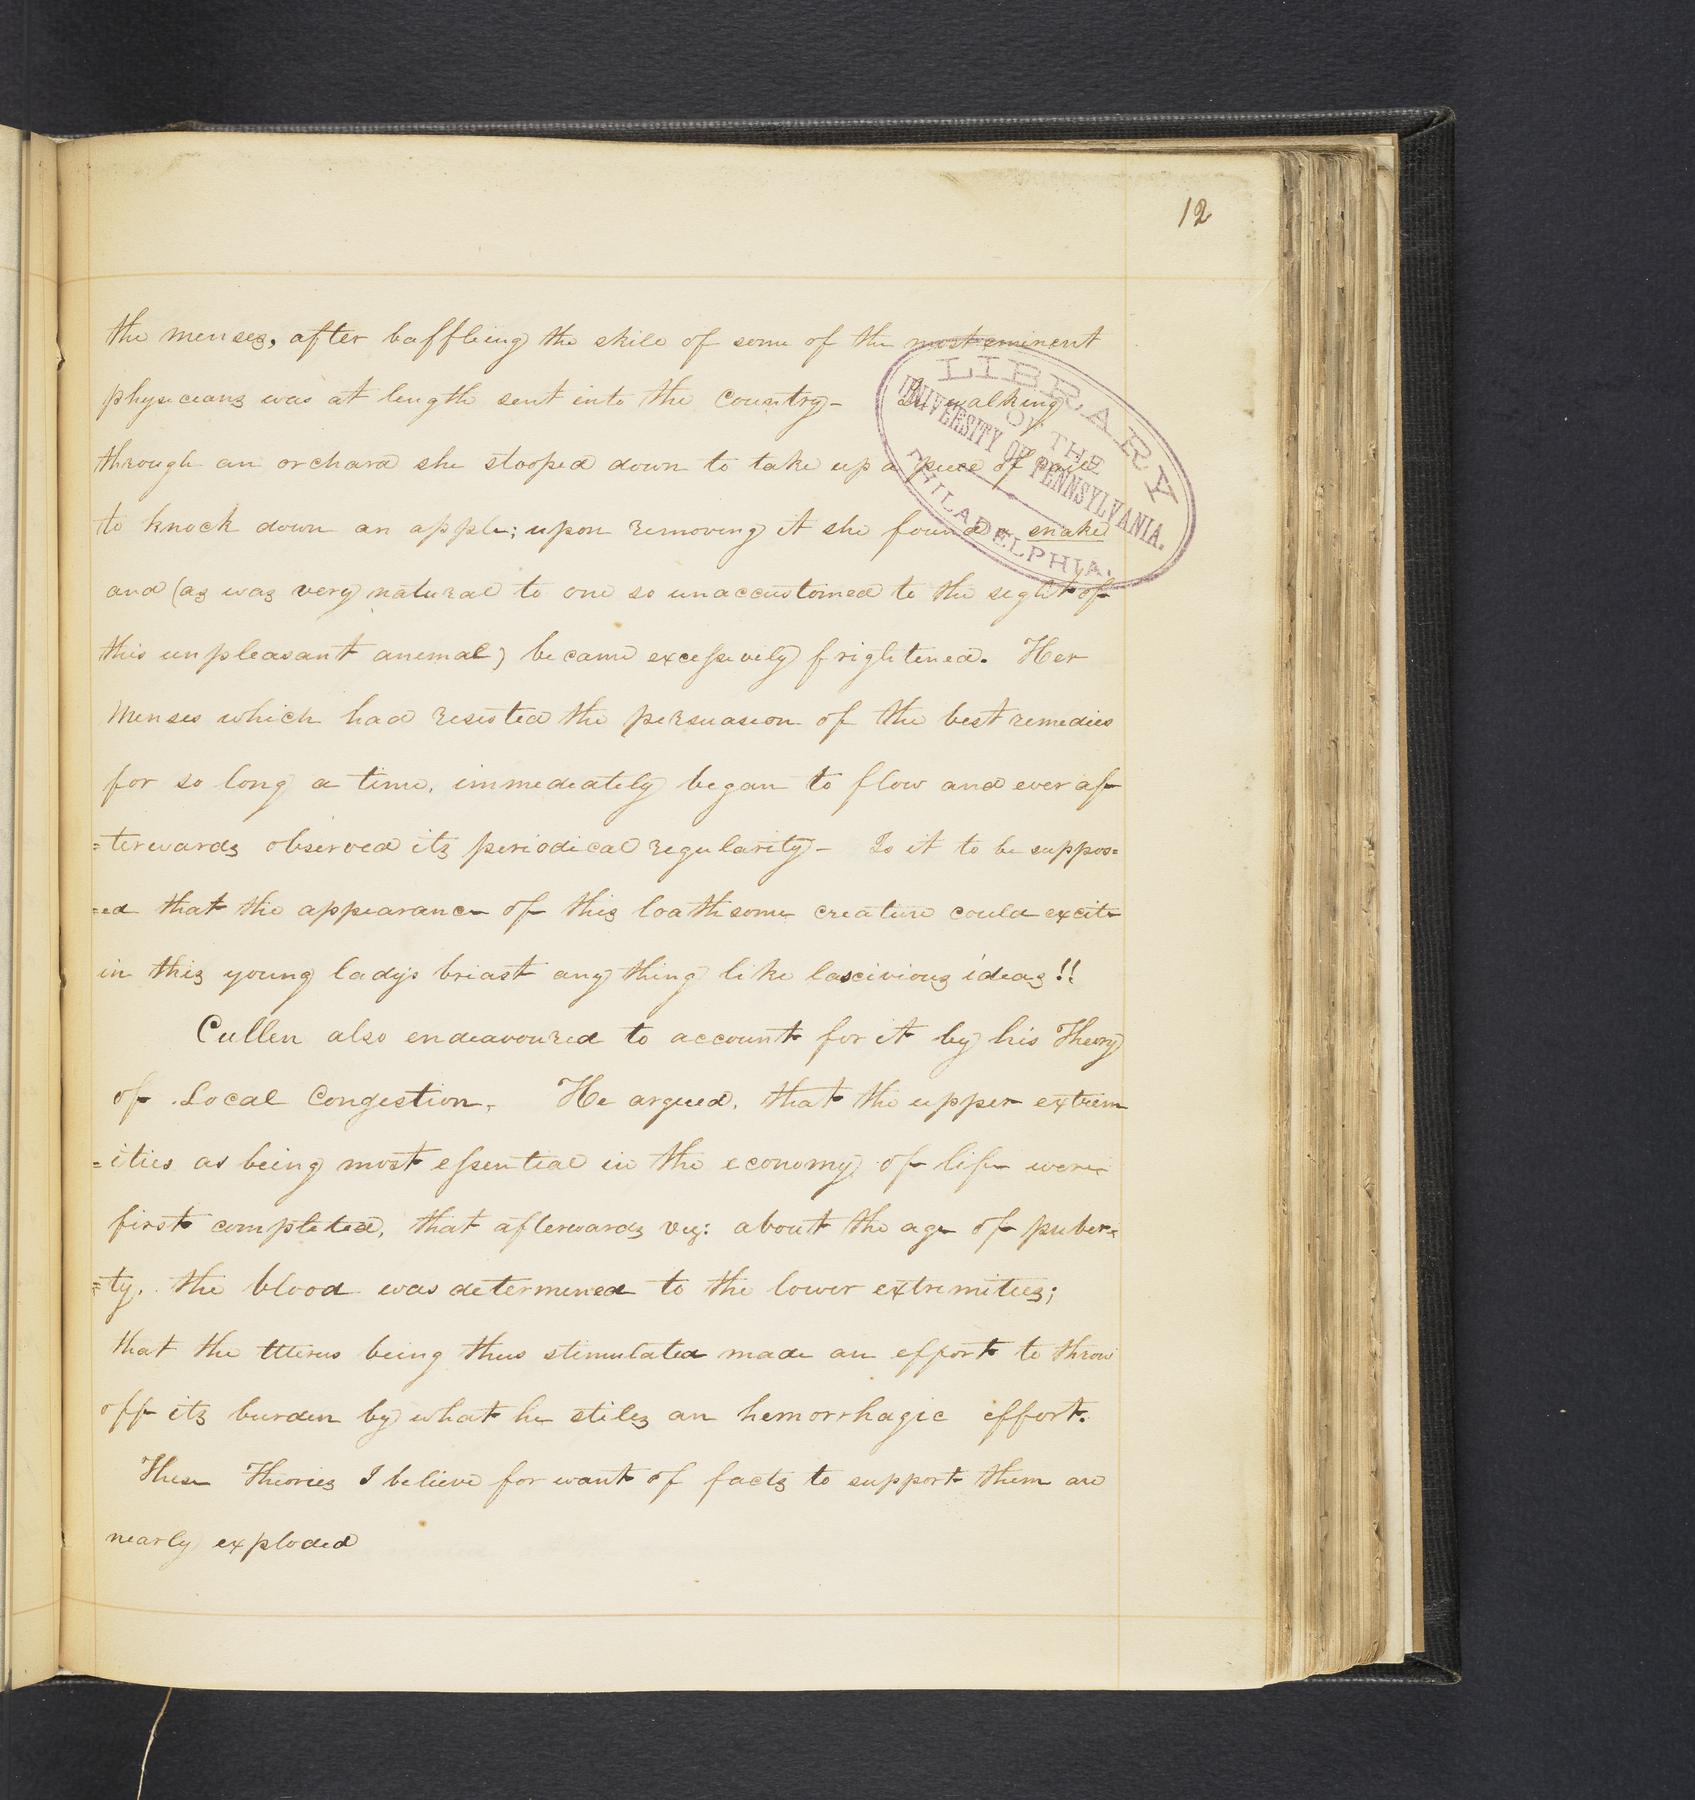 12
the menses, after baffleing the skill of some of the most eminent
physicians was at length sent into the Country- In walking
through an orchard she stooped down to take up a piece of rail
to knock down an apple; upon removing it she found a snake
and (as was very natural to one so unaccustomed to the sight of
this unpleasant animal) became excessively frightened. Her
Menses which had resisted the persuasion of the best remedies
for so long a time, immediately began to flow and ever af-
=terwards observed its periodical regularity- Is it to be suppos=
=ed that the appearance of this loathsome creature could excite
in this young lady's breast any thing like lascivious ideas!!
Cullen also endeavoured to account for it by his Theory
of Local Congestion. He argued, that the upper extrem
=ities as being most essential in the economy of life were
first completed, that afterwards viz: about the age of puber=
=ty, the blood was determined to the lower extremities;
that the Uterus being thus stimulated made an effort to throw
off its burden by what he stiles an hemorrhagic effort.
These Theories I believe for want of facts to support them are
nearly exploded
LIBRARY
OF THE
UNIVERSITY OF PENNSYLVANIA.
PHILADELPHIA.